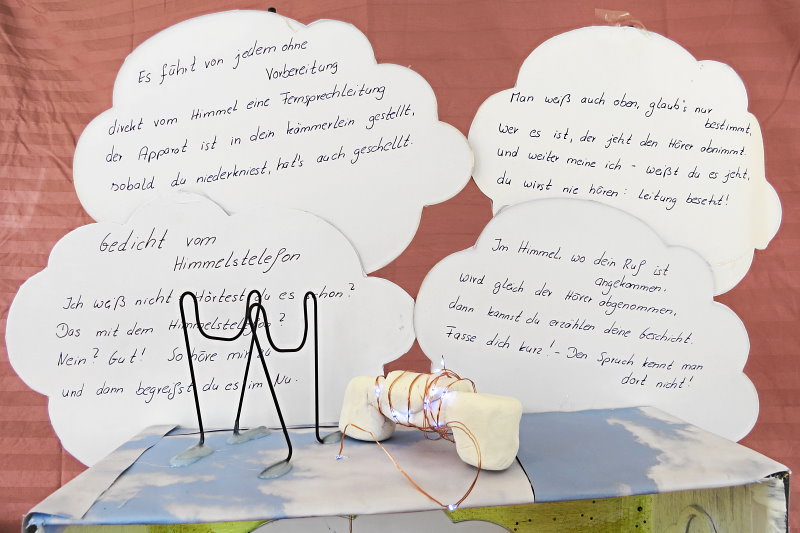 Gedicht vom
Himmelstelefon
Ich weiß nicht - Hörtest du es schon?
Das mit dem Himmelstelefon?
Nein? Gut! So höre mir zu
und dann begreifst du es im Nu.
Es führt von jedem ohne
Vorbereitung
direkt vom Himmel eine Fernsprechleitung
der Apparat ist in dein kämmerlein gestellt,
sobald du niederkniest, hat's auch geschellt.
Im Himmel, wo dein Ruf ist
angekommen,
wird gleich der Hörer abgenommen,
dann kannst du erzählen deine Geschicht.
Fasse dich kurz! - Den Spruch kennt man
dort nicht!
Man weiß auch oben, glaub's nur
bestimmt,
wer es ist, der jeht den Hörer abnimmt.
und weiter meine ich - weißt du es jeht,
du wirst nie hören: leitung besetzt!